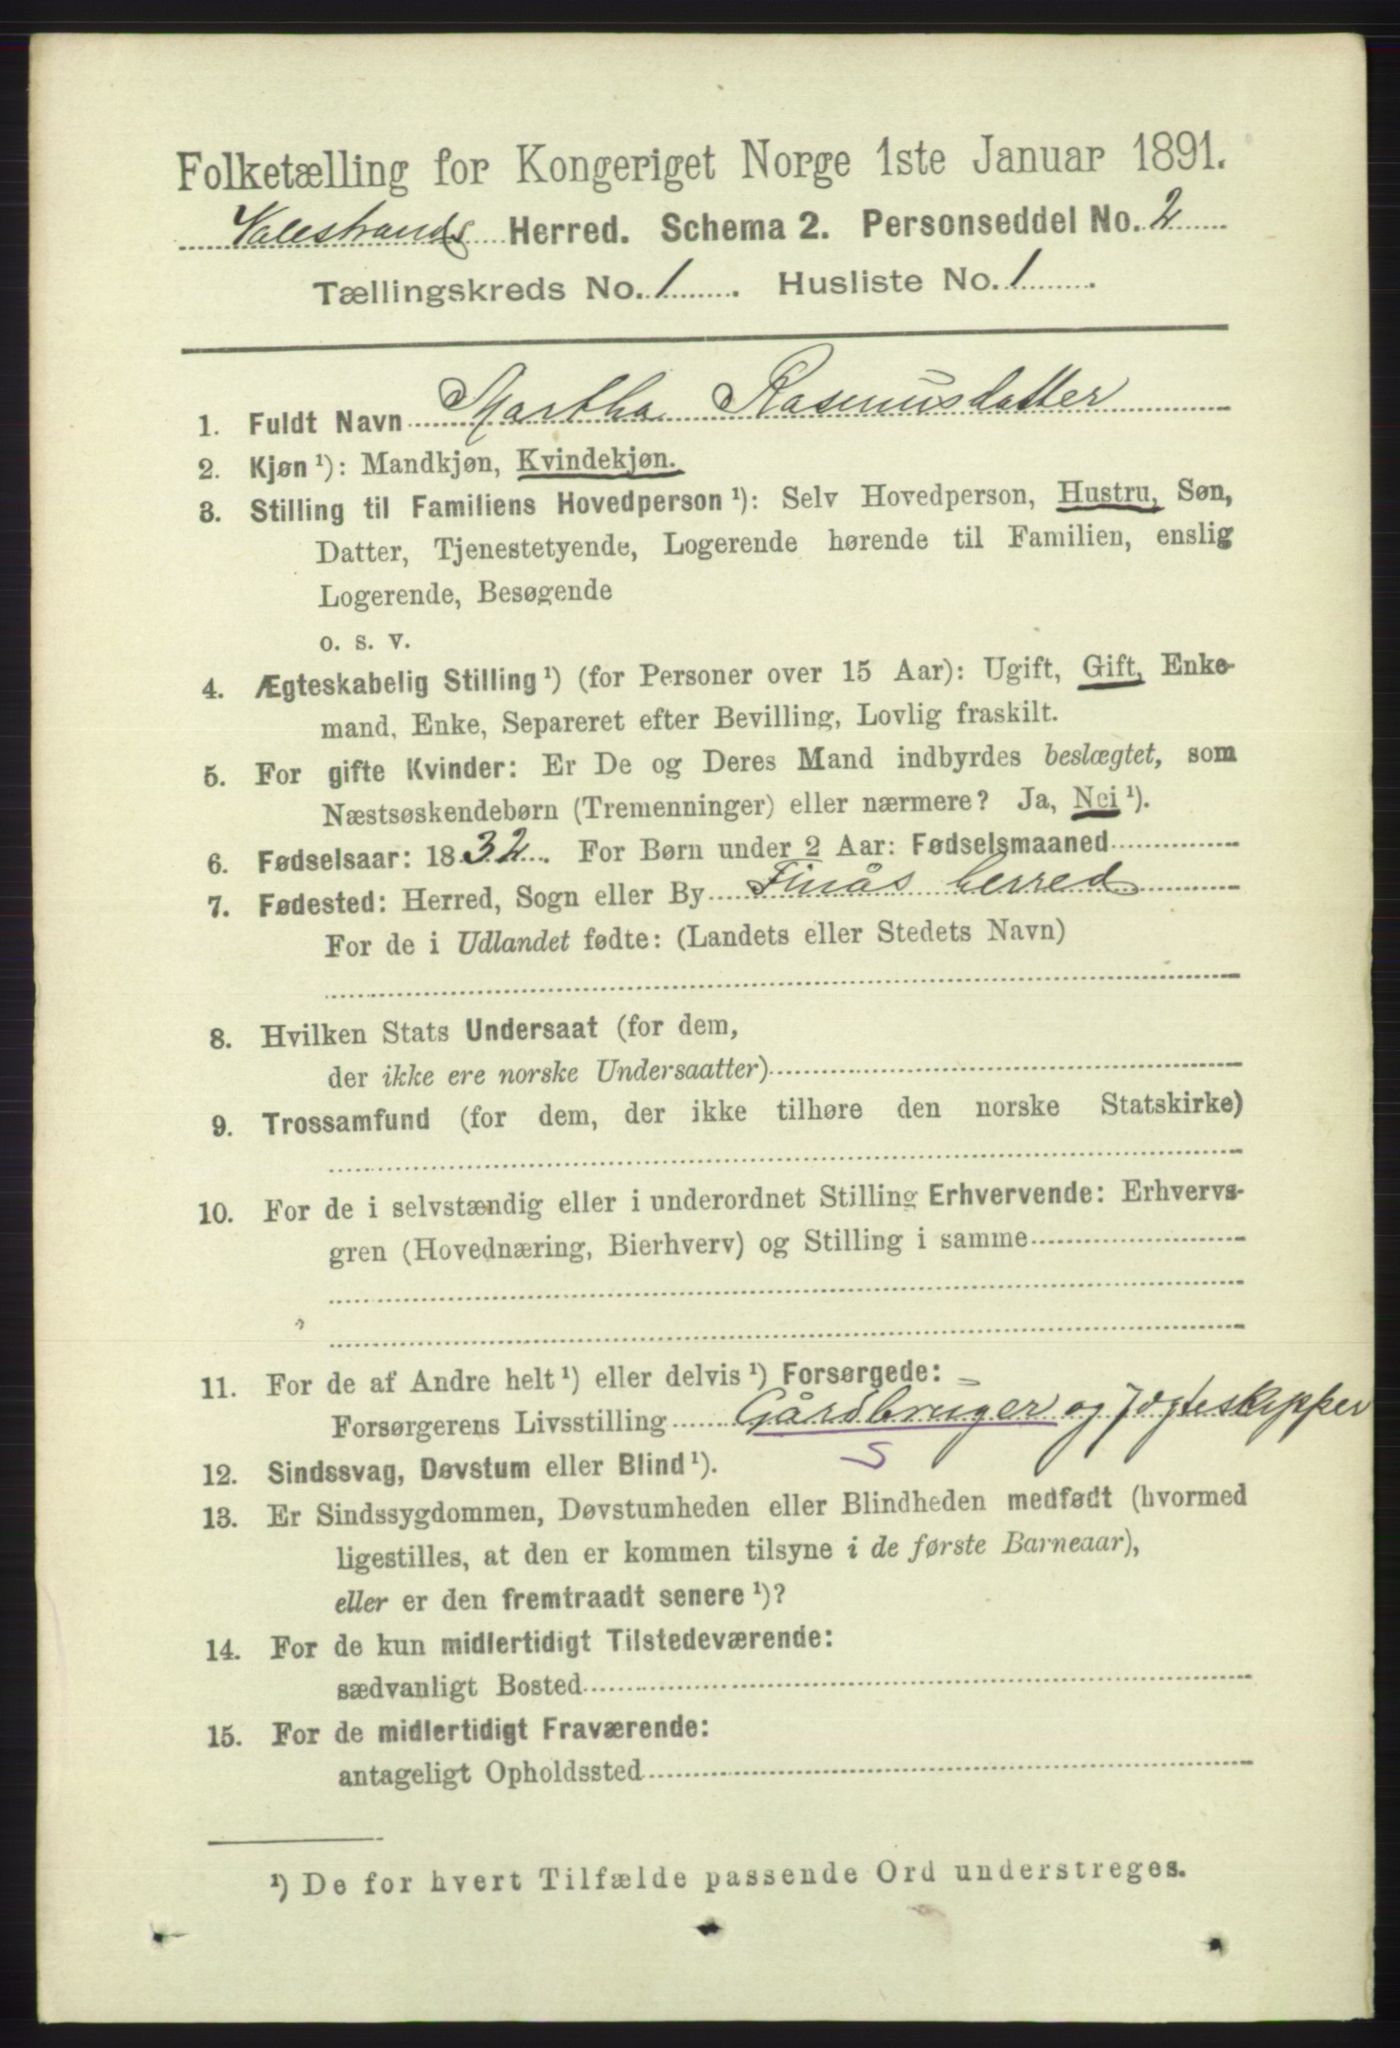 Folketælling for Kongeriget Norge 1ste Januar 1891.
Valestrands Herred. Schema 2. Personseddel No. 2
Tællingskreds No. 1. Husliste No. 1.
1. Fuldt Navn Martha Rasmusdatter
2. Kjøn ¹): Mandkjøn, Kvindekjøn.
3. Stilling til Familiens Hovedperson ¹): Selv Hovedperson, Hustru, Søn,
Datter, Tjenestetyende, Logerende hørende til Familien, enslig
Logerende, Besøgende
o. s. v.
4. Ægteskabelig Stilling ¹) (for Personer over 15 Aar): Ugift, Gift, Enke-
mand, Enke, Separeret efter Bevilling, Lovlig fraskilt.
5. For gifte Kvinder: Er De og Deres Mand indbyrdes beslægtet, som
Næstsøskendebørn (Tremenninger) eller nærmere? Ja, Nei ¹).
6. Fødselsaar: 1832. For Børn under 2 Aar: Fødselsmaaned
7. Fødested: Herred, Sogn eller By Finås herred
For de i Udlandet fødte: (Landets eller Stedets Navn)
8. Hvilken Stats Undersaat (for dem,
der ikke ere norske Undersaatter)
9. Trossamfund (for dem, der ikke tilhøre den norske Statskirke)
10. For de i selvstændig eller i underordnet Stilling Erhvervende: Erhvervs-
gren (Hovednæring, Bierhverv) og Stilling i samme
11. For de af Andre helt ¹) eller delvis ¹) Forsørgede:
Forsørgerens Livsstilling Gårdbruger og Jægteskipper
S
12. Sindssvag, Døvstum eller Blind ¹).
13. Er Sindssygdommen, Døvstumheden eller Blindheden medfødt (hvormed
ligestilles, at den er kommen tilsyne i de første Barneaar),
eller er den fremtraadt senere ¹)?
14. For de kun midlertidigt Tilstedeværende:
sædvanligt Bosted
15. For de midlertidigt Fraværende:
antageligt Opholdssted
¹) De for hvert Tilfælde passende Ord understreges.